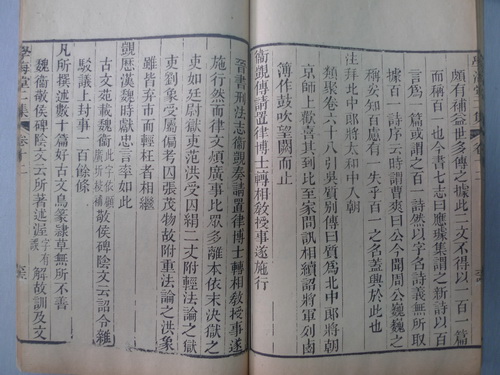 頗有補益世多傳之據此二文不得以一百一篇
而稱百一也今書七志曰應璩集謂之新詩以百
言爲一篇或謂之百一詩然以字名詩義無所取
據百一詩序云時謂曹爽曰公今聞周公巍巍之
稱安知百慮有一失乎百一之名蓋興於此也
注拜北中郎將太和中入朝
類聚卷六十八引吳質別傳曰質爲北中郎將朝
京師上歡喜其到比至家問訊相續詔將軍列鹵
簿作鼓吹望闕而止
衞覬傳請置律博士轉相敎授事遂施行
晉書刑法志衞覬奏請置律博士轉相敎授事遂
施行然而律文煩廣事比眾多離本依末決獄之
吏如廷尉獄吏范洪受囚絹二丈附輕法論之獄
吏劉象受屬偏考囚張茂物故附重法論之洪象
雖皆弃市而輕枉者相繼
覬歷漢魏時獻忠言率如此
古文苑載衞覬此字依顧廣圻校補敬侯碑陰文云詔令雜
駁議上封事一百餘條
凡所撰述數十篇好古文鳥篆隷草無所不善
魏衞敬侯碑陰文云所著述涯字有誤解故訓及文
學海堂二集 卷十二